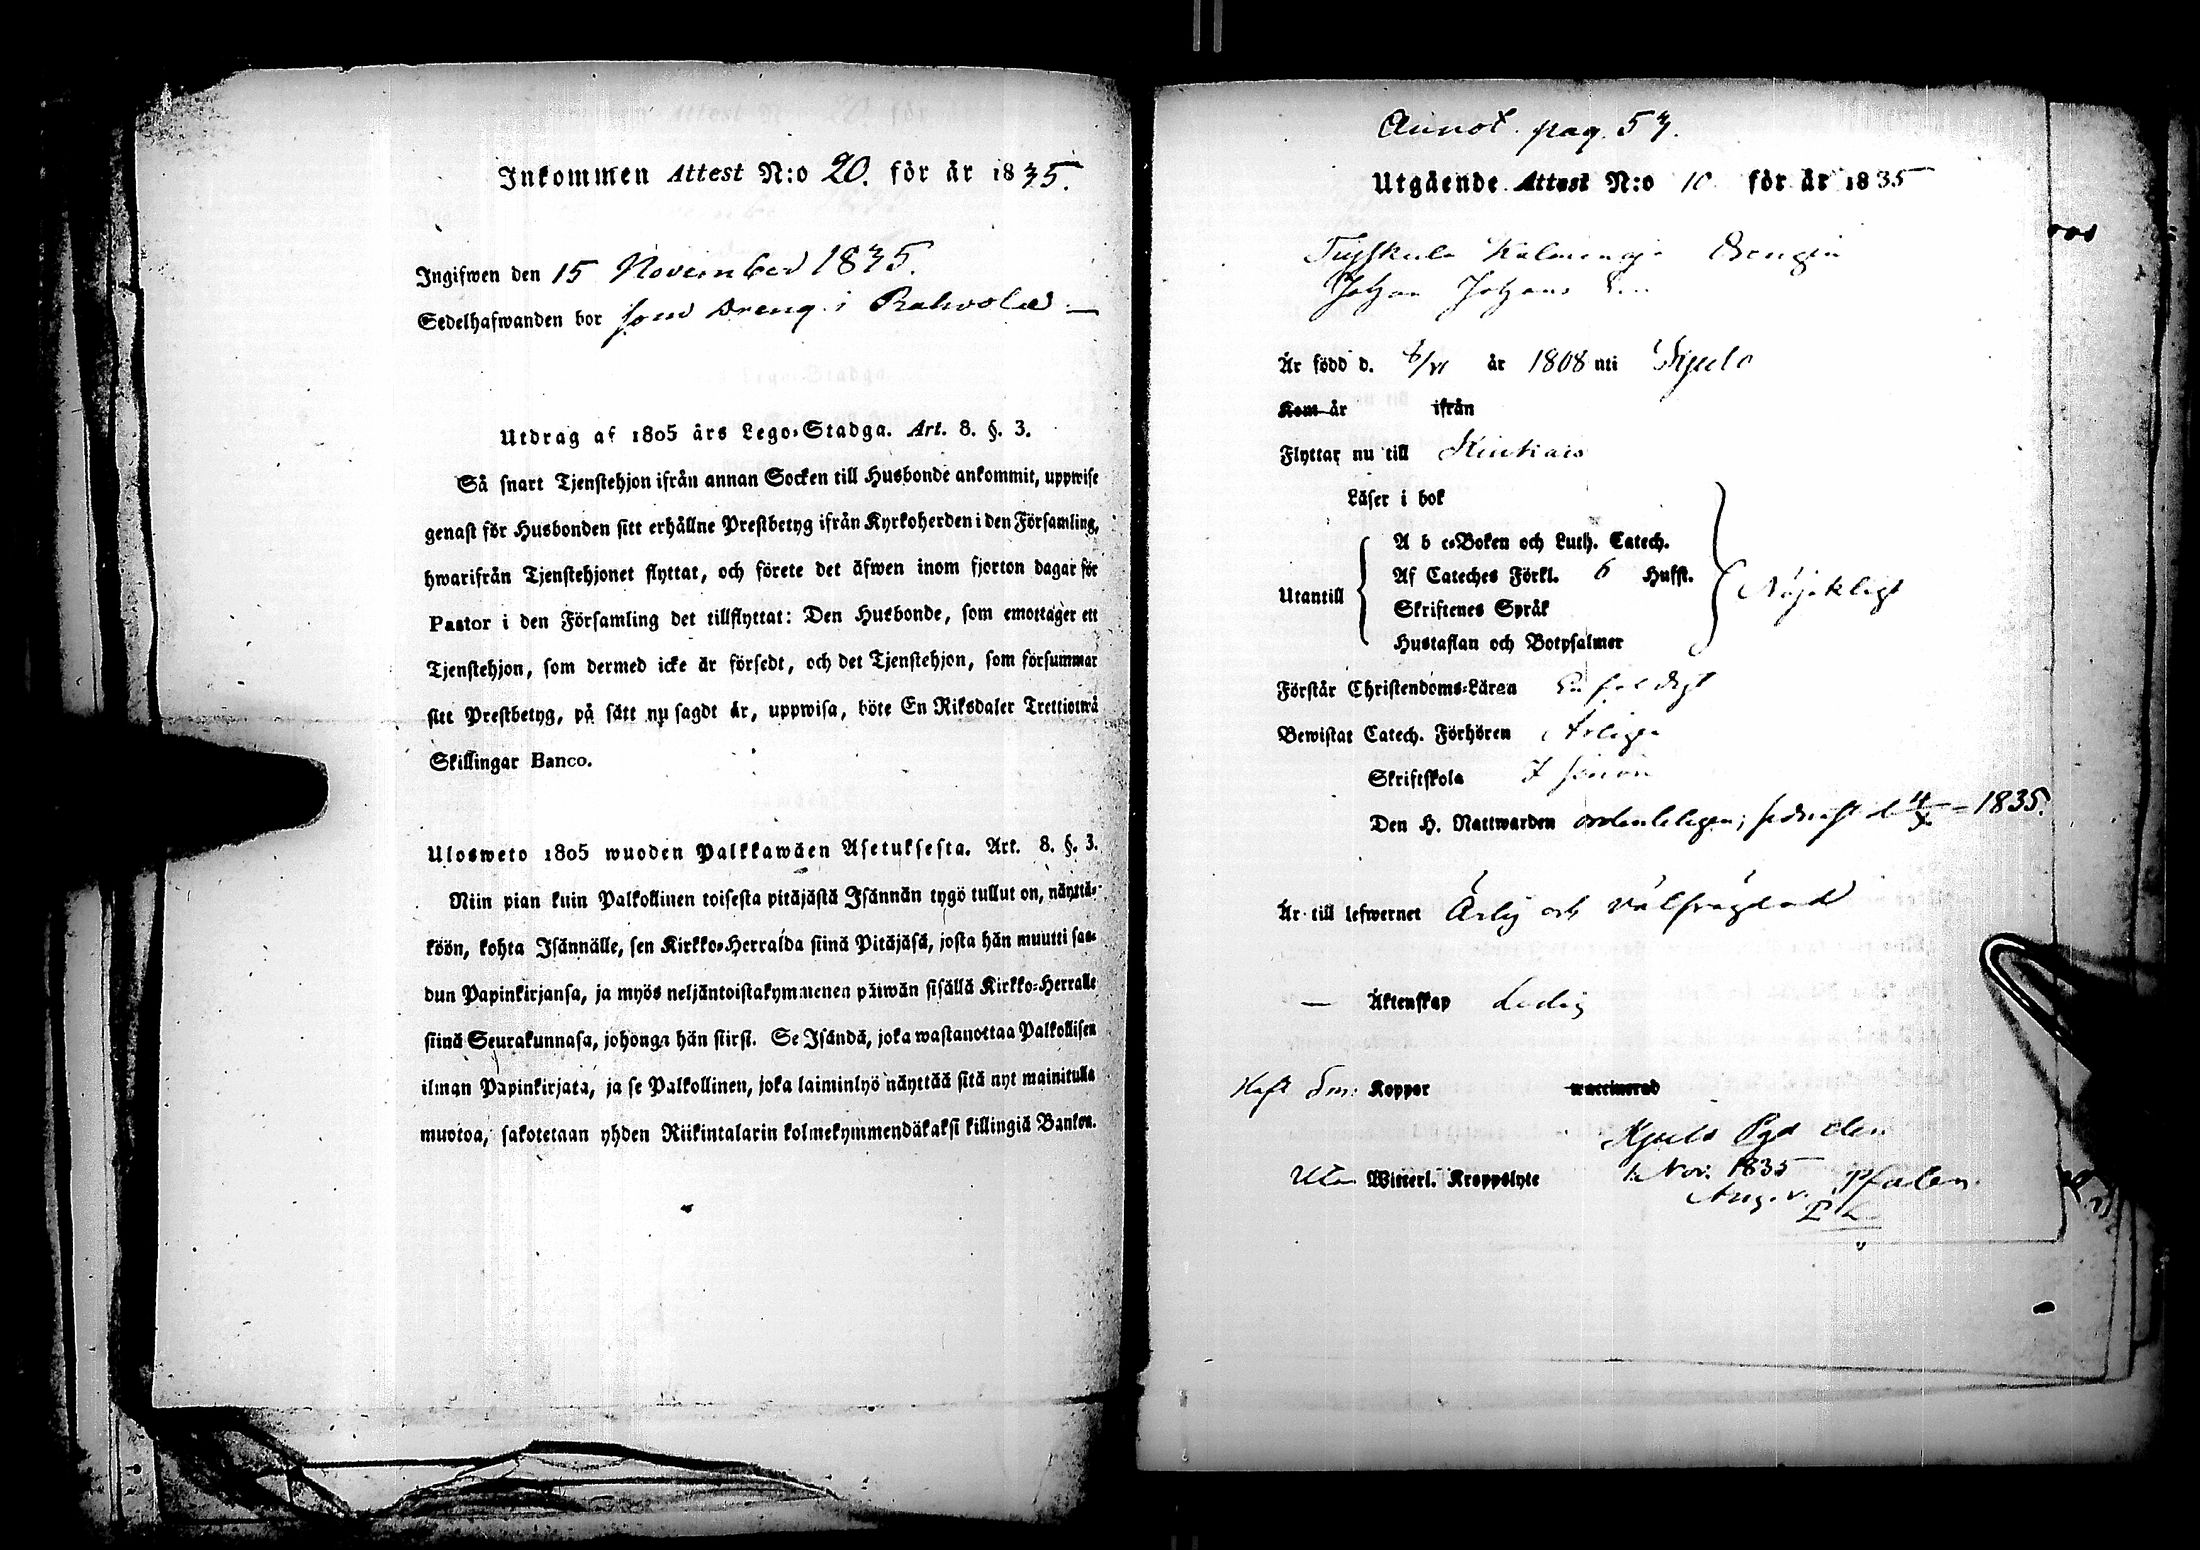 Inkommen Attest N:o 20. för år 1835.
Ingifwen den 15 November 1835.
Sedelhafwanden bor som Dreng i Rahvola —
Utdrag af 1805 års Lego-Stadga. Art. 8. §. 3.
Så snart Tjenstehjon ifrån annan Socken till Husbonde ankommit, uppwise
genast för Husbonden sitt erhållne Prestbetyg ifrån Kyrkoherden i den Församling,
hwarifrån Tjenstehjonet flyttat, och förete det äfwen inom fjorton dagar för
Pastor i den Församling det tillflyttat: Den Husbonde, som emottager ett
Tjenstehjon, som dermed icke är försedt, och det Tjenstehjon, som försummar
sitt Prestbetyg, på sätt nu sagdt är, uppwisa, böte En Riksdaler Trettiotwå
Skillingar Banco.
Ulosweto 1805 wuoden Palkkawäen Asetuksesta. Art. 8. §. 3.
Niin pian kuin Palkollinen toisesta pitäjästä Isännän tygö tullut on, näyttä-
köön, kohta Isännälle, sen Kirkko-Herralda siinä Pitäjäsä, josta hän muutti saa-
dun Papinkirjansa, ja myös neljäntoistakymmenen päiwän sisällä Kirkko-Herralle
siinä Seurakunnasa, johonga hän siirsi. Se Isändä, joka wastanottaa Palkollisen
ilman Papinkirjata, ja se Palkollinen, joka laiminlyö näyttää sitä nyt mainitulla
muotoa, sakotetaan yhden Riikintalarin kolmekymmendäkaksi killingiä Bankon.
Annot. pag. 57.
Utgående Attest N:o 10 för år 1835
Drengen
Johan Johans
Är född d. 6/VI år 1808 uti Kjulo
Kom år ifrån
Flyttar nu till Kiukais
Läser i bok
A b c-Boken och Luth. Catech.
Af Cateches Förkl. 6 Hufst.
Utantill
Skriftenes Språk
Nöjakligt
Hustaflan och Botpsalmer
Förstår Christendoms-Läran Enfaldigt
Bewistat Catech. Förhören Årligen
Skriftskola
Den H. Nattwarden ordenteligen; sednast d 1835.
Är till lefwernet Ärlig och välfrägdad
— Äktenskap Ledig
Haft Sm: Koppor waccinerad
Kjulo Pgd den
Utan Witterl. Kroppslyte 1 Nov. 1835